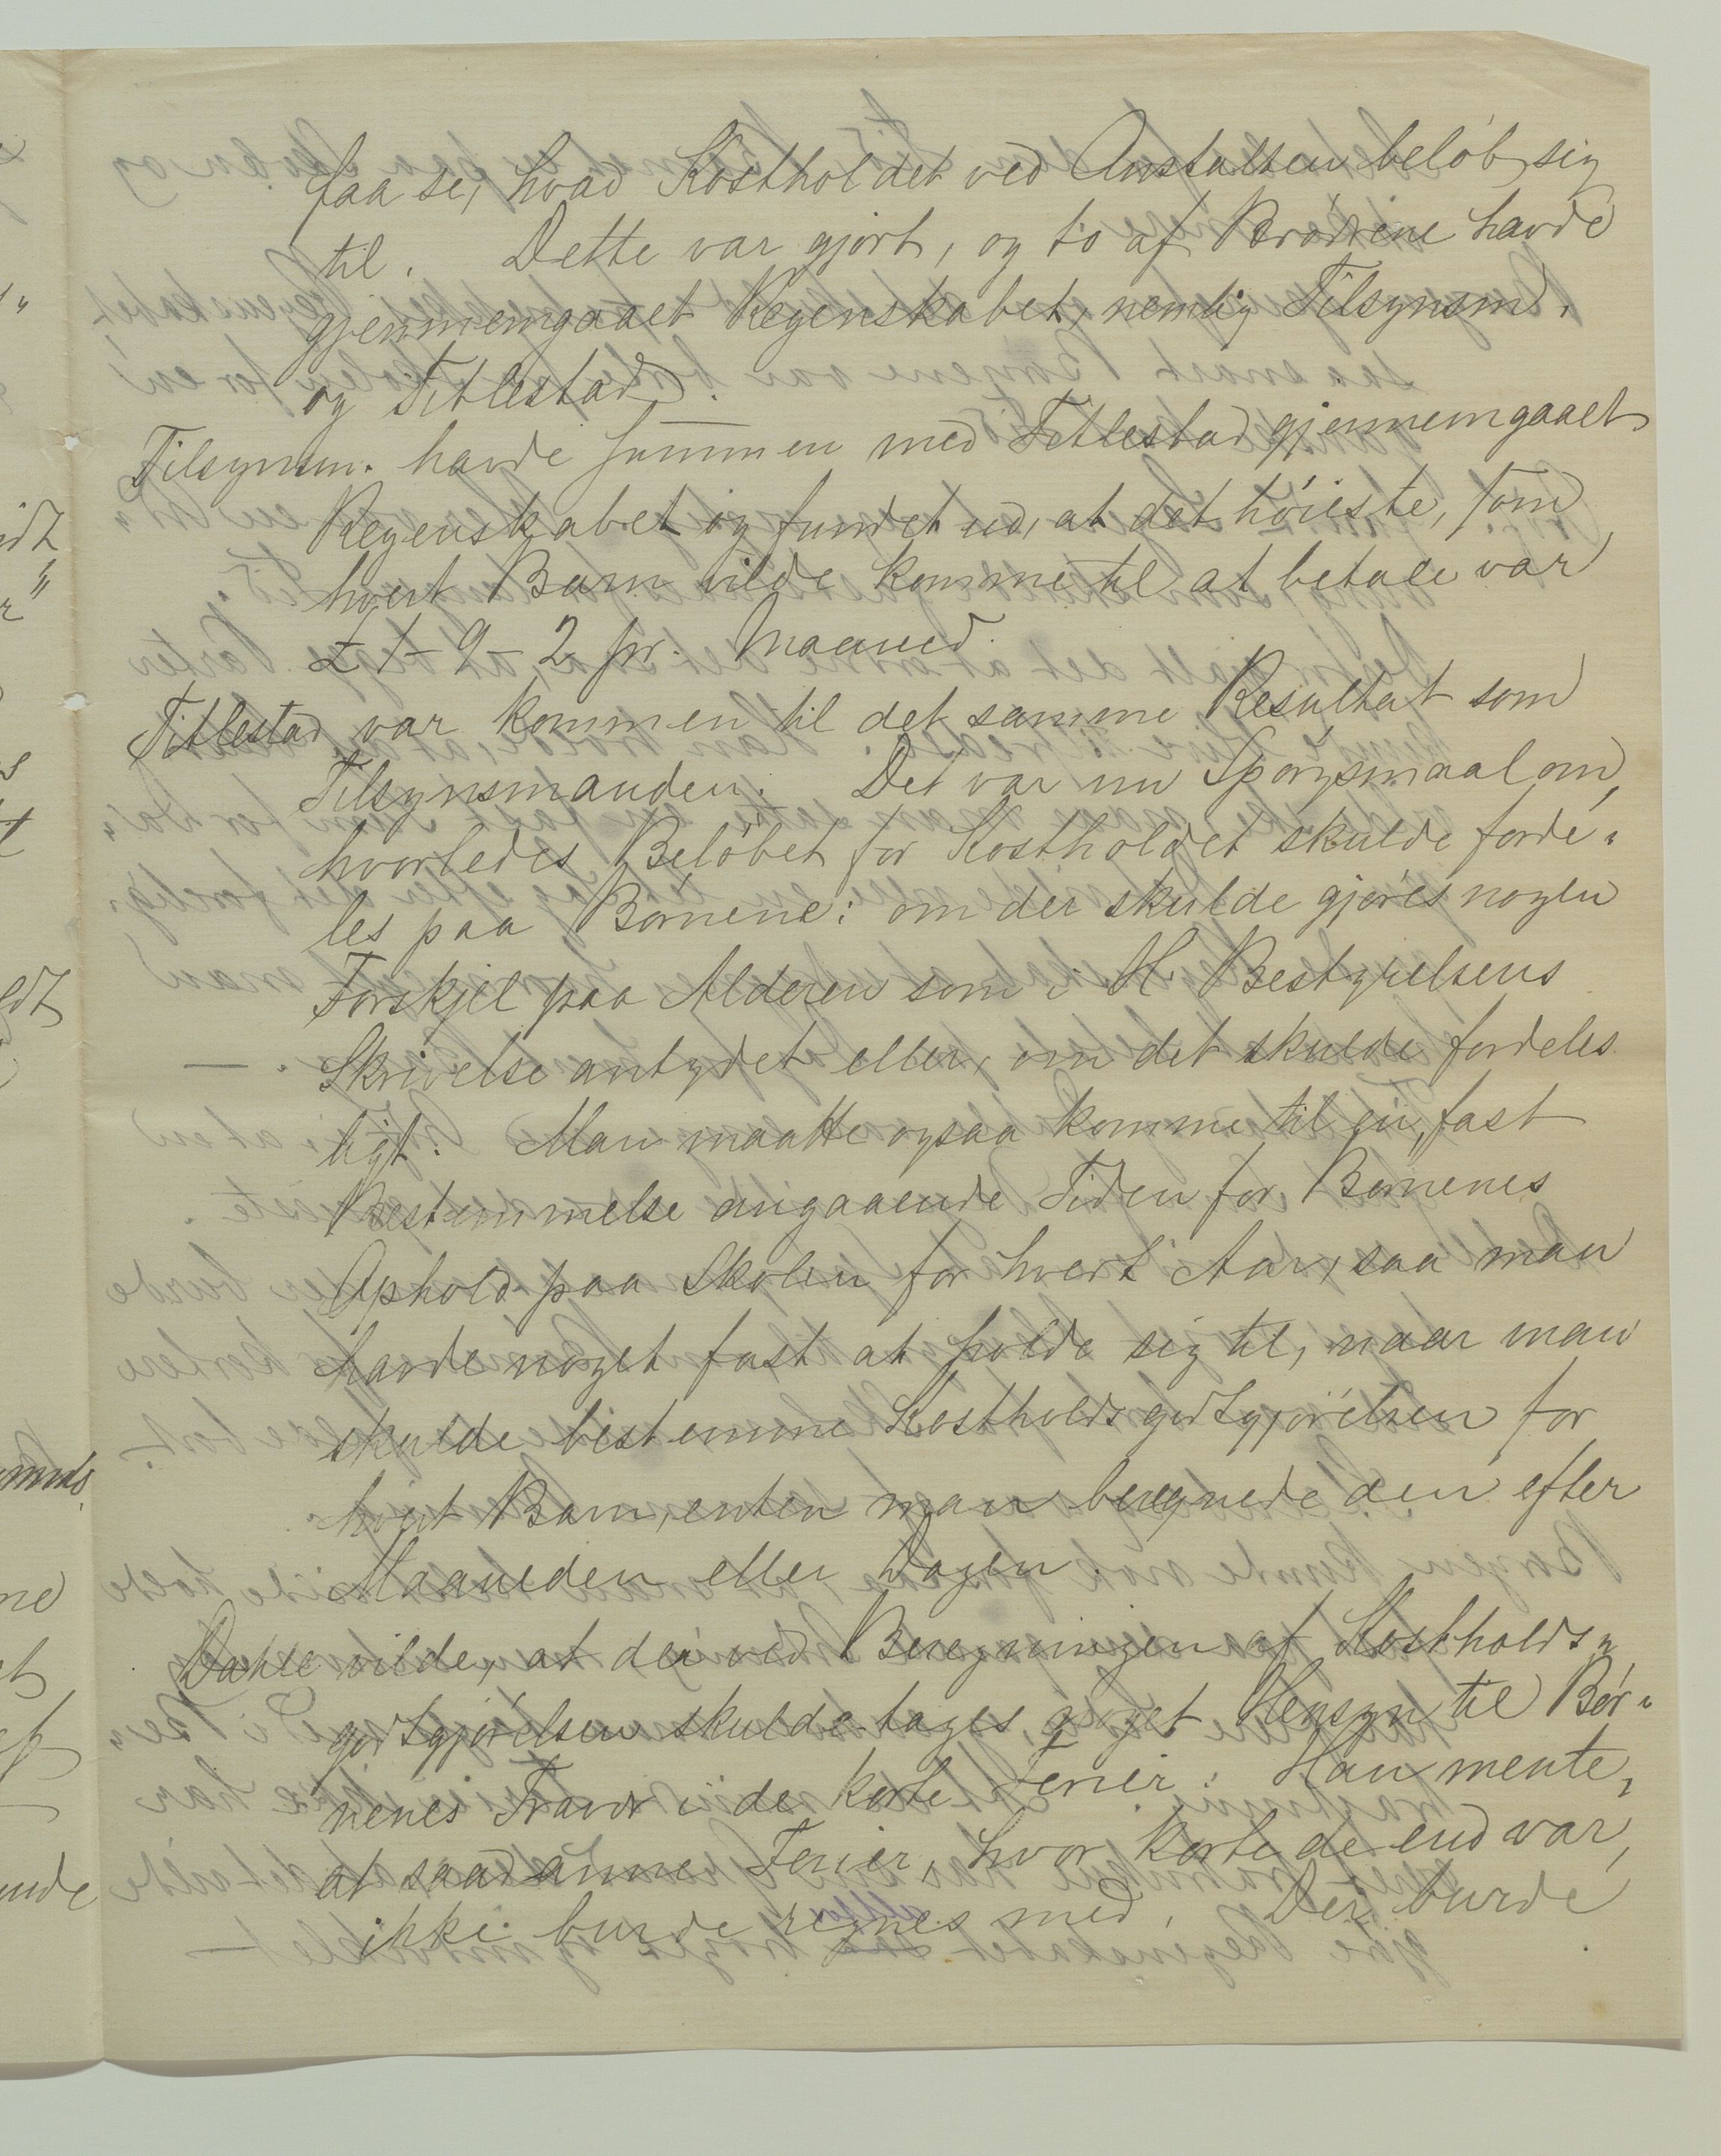 faa se, hvad Kostholdet ved Anstalten beløb sig
til. Dette var gjort, og to af Brødrene havde
gjennemgaaet Regenskabet, nemlig Tilsynsm.
og Titlestad.
Tilsynsm. havde sammen med Titlestad gjennemgaaet
Regenskabet og fundet ud, at det høieste, som
hvert Barn vilde komme til at betale var
£ 1-9-2 pr. Maaned.
Titlestad var kommen til det samme Resultat som
Tilsynsmanden. Det var nu Spørgsmaal om,
hvorledes Beløbet for Kostholdet skulde forde-
les paa Børnene: om der skulde gjøres nogen
Forskjel paa Alderen som i H. Bestyrelsens
Skrivelse antydet eller, om det skulde fordeles
ligt. Man maatte ogsaa komme til en fast
Bestemmelse angaaende Tiden for Børnenes
Ophold paa Skolen for hvert Aar, saa man
havde noget fast at holde sig til, naar man
skulde bestemme Kostholdsgodtgjørelsen for
hvert Barn, enten man beregnede den efter
Maaneden eller Dagen.
Dahle vilde, at der ved Beregningen af Kostholds-
godtgjørelsen skulde tages noget Hensyn til Bør-
nenes Fravær i de korte Ferier. Han mente,
at saadanne Ferier, hvor korte de end var,
ikke burde regnes med. Der burde